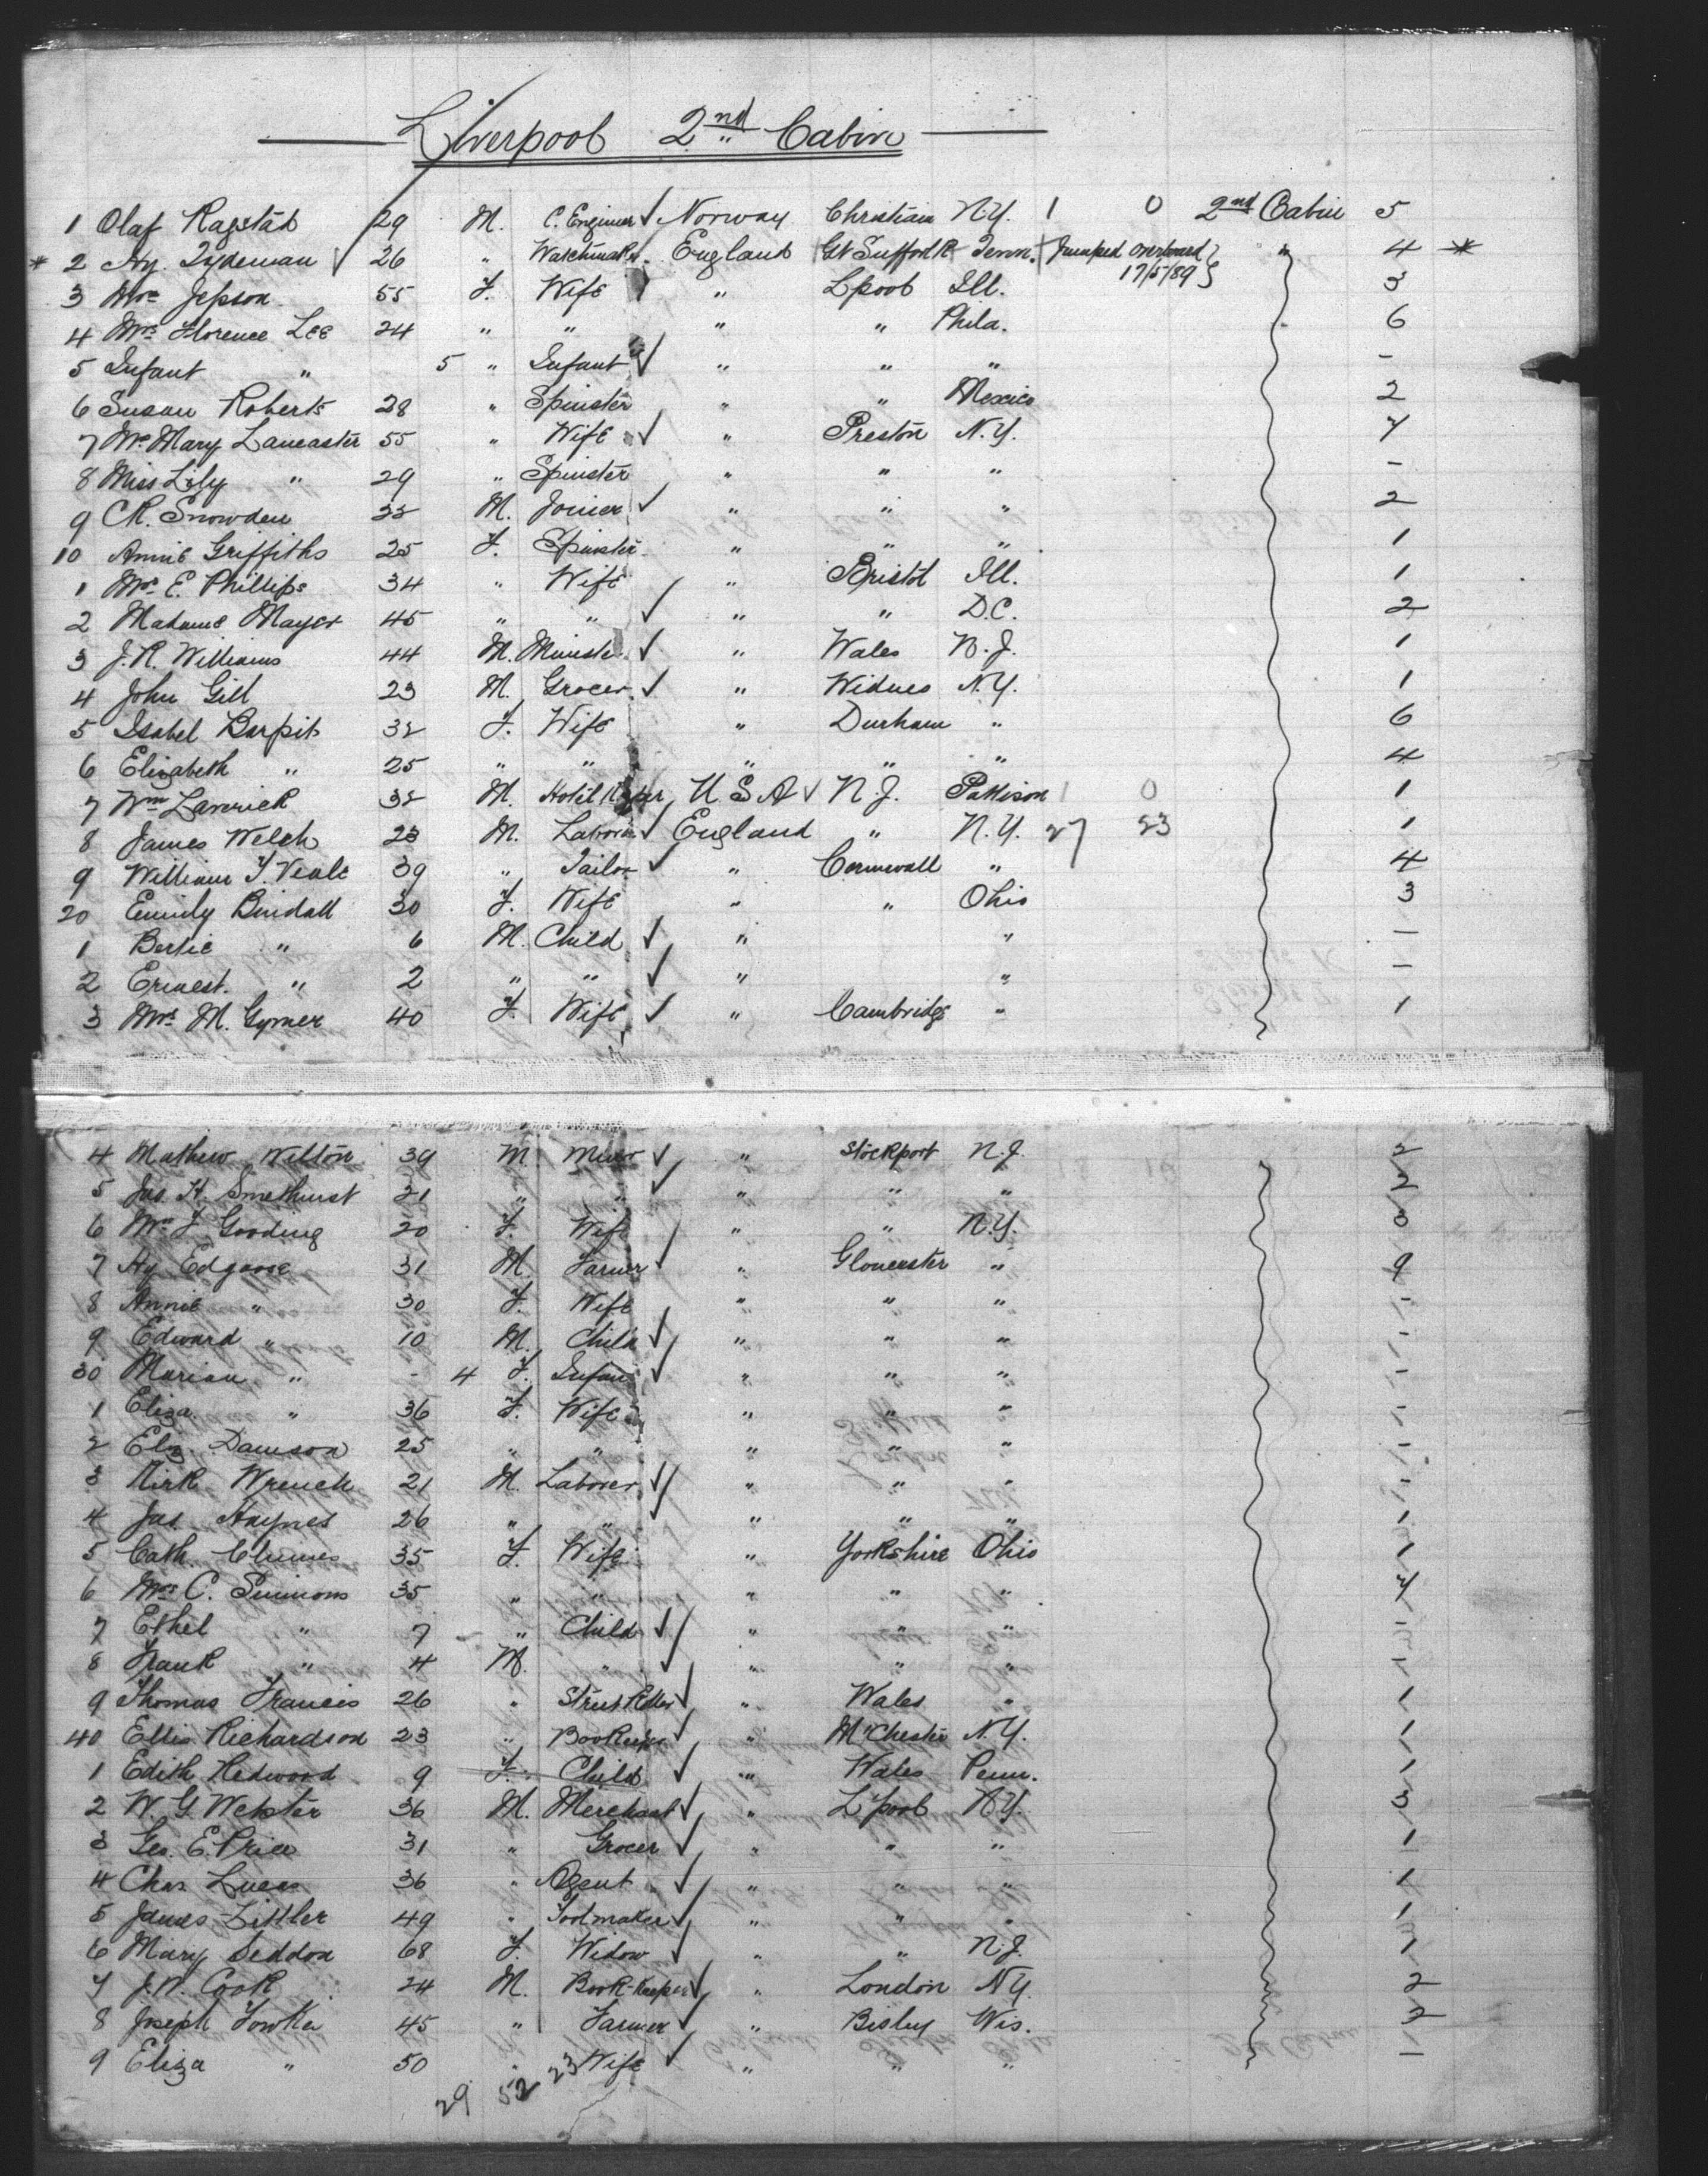 Liverpool 2nd Cabin
1 Olaf Ragstad 29 M. C. Engineer ✓ Norway Christian N.Y. 1 0 2nd Cabin 5
* 2 Hy. Tydeman ✓ 26 " Watchmaker England Gt Suffolk Tenn. Jumped overboard } " 4 *
17/5/89
3 Mrs Jepson 55 F. Wife " Lpool Ill. 3
4 Mrs Florence Lee 24 " " " " Phila. 6
5 Infant " 5 " Infant ✓ " " " -
6 Susan Roberts 28 " Spinster " " Mexico 2
7 Mrs Mary Lancaster 55 " Wife ✓ " Preston N.Y. 7
8 Miss Lily " 29 " Spinster " " " -
9 C.R. Snowden 32 M. Joiner ✓ " " " 2
10 Annie Griffiths 25 F. Spinster " " " 1
1 Mrs E. Phillips 34 " Wife " Bristol Ill. 1
2 Madame Mayer 45 " " ✓ " " D.C. 2
3 J.R. Williams 44 M. Ministe ✓ " Wales N.J. 1
4 John Gill 23 M. Grocer ✓ " Widnes N.Y. 1
5 Isabel Barpit 32 F. Wife " Durham " 6
6 Elizabeth " 25 " " " " " 4
7 Wm Laverick 32 M. Hotel Kper U S A ✓ N.J. Pattison 1 0 1
8 James Welch 23 M. Laborer ✓ England " N.Y. 27 23 1
9 William T. Veale 39 " Tailor ✓ " Cornwall " 4
20 Emily Bindall 30 F. Wife " " Ohio 3
1 Bertie " 6 M. Child ✓ " " -
2 Ernest. " 2 " " ✓ " " -
3 Mrs M. Gymer 40 F. Wife ✓ " Cambridge " 1
4 Mathew Wilton 39 M. Miner ✓ " Stockport N.J. 2
5 Jas. H. Smethurst 21 " " ✓ " " " 2
6 Mrs F Gooding 20 F. Wife " " N.Y. 3
7 Hy Edgoose 31 M. Farmer ✓ " Gloucester " 9
8 Annie " 30 F. Wife " " " -
9 Edward " 10 M. Child ✓ " " " -
30 Marian " - 4 F. Infant ✓ " " " -
1 Eliza " 36 F. Wife " " " -
2 Elz. Damson 25 " " " " " -
3 Kirk Wrench 21 M. Laborer ✓ " " " -
4 Jas Haynes 26 " " " " " 1
5 Cath. 35 F. Wife " Yorkshire Ohio 1
6 Mrs C. Simmons 35 " " " " " 4
7 Ethel " 7 " Child ✓ " " " -
8 Frank " 4 M. " " " " -
9 Thomas Francis 26 " ✓ " Wales " 1
40 Ellis Richardson 23 " Bookeeper ✓ " M'Chester N.Y. 1
1 Edith Hedwood 9 F. Child ✓ " Wales Penn. 1
2 W. G. Webster 36 M. Merchant ✓ " L'pool N.Y. 3
3 Geo. E. Price 31 " Grocer ✓ " " " 1
4 Chas Lucas 36 " Agent ✓ " " " 1
5 James Littler 49 " Toolmaker ✓ " " " 1
6 Mary Seddon 68 F. Widow ✓ " " N.J. 1
7 J.W. Cook 24 M. Book-Keeper ✓ " London N.Y. 2
8 Joseph Fowke 45 " Farmer ✓ " Bisley Wis. 2
9 Eliza " 50 " Wife ✓ " " " -
29 52 23